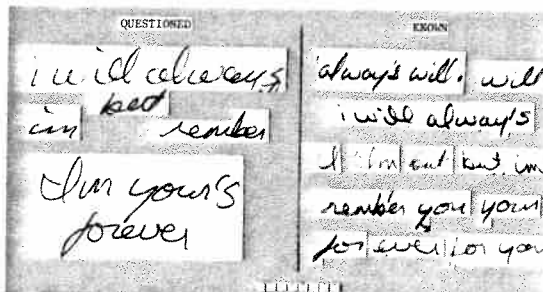 QUESTIONED
i will always
but
im rember
Im your's
forever
KNOWN
always will. will
i will always
I I'm out but im
remker you yours
for ever for you